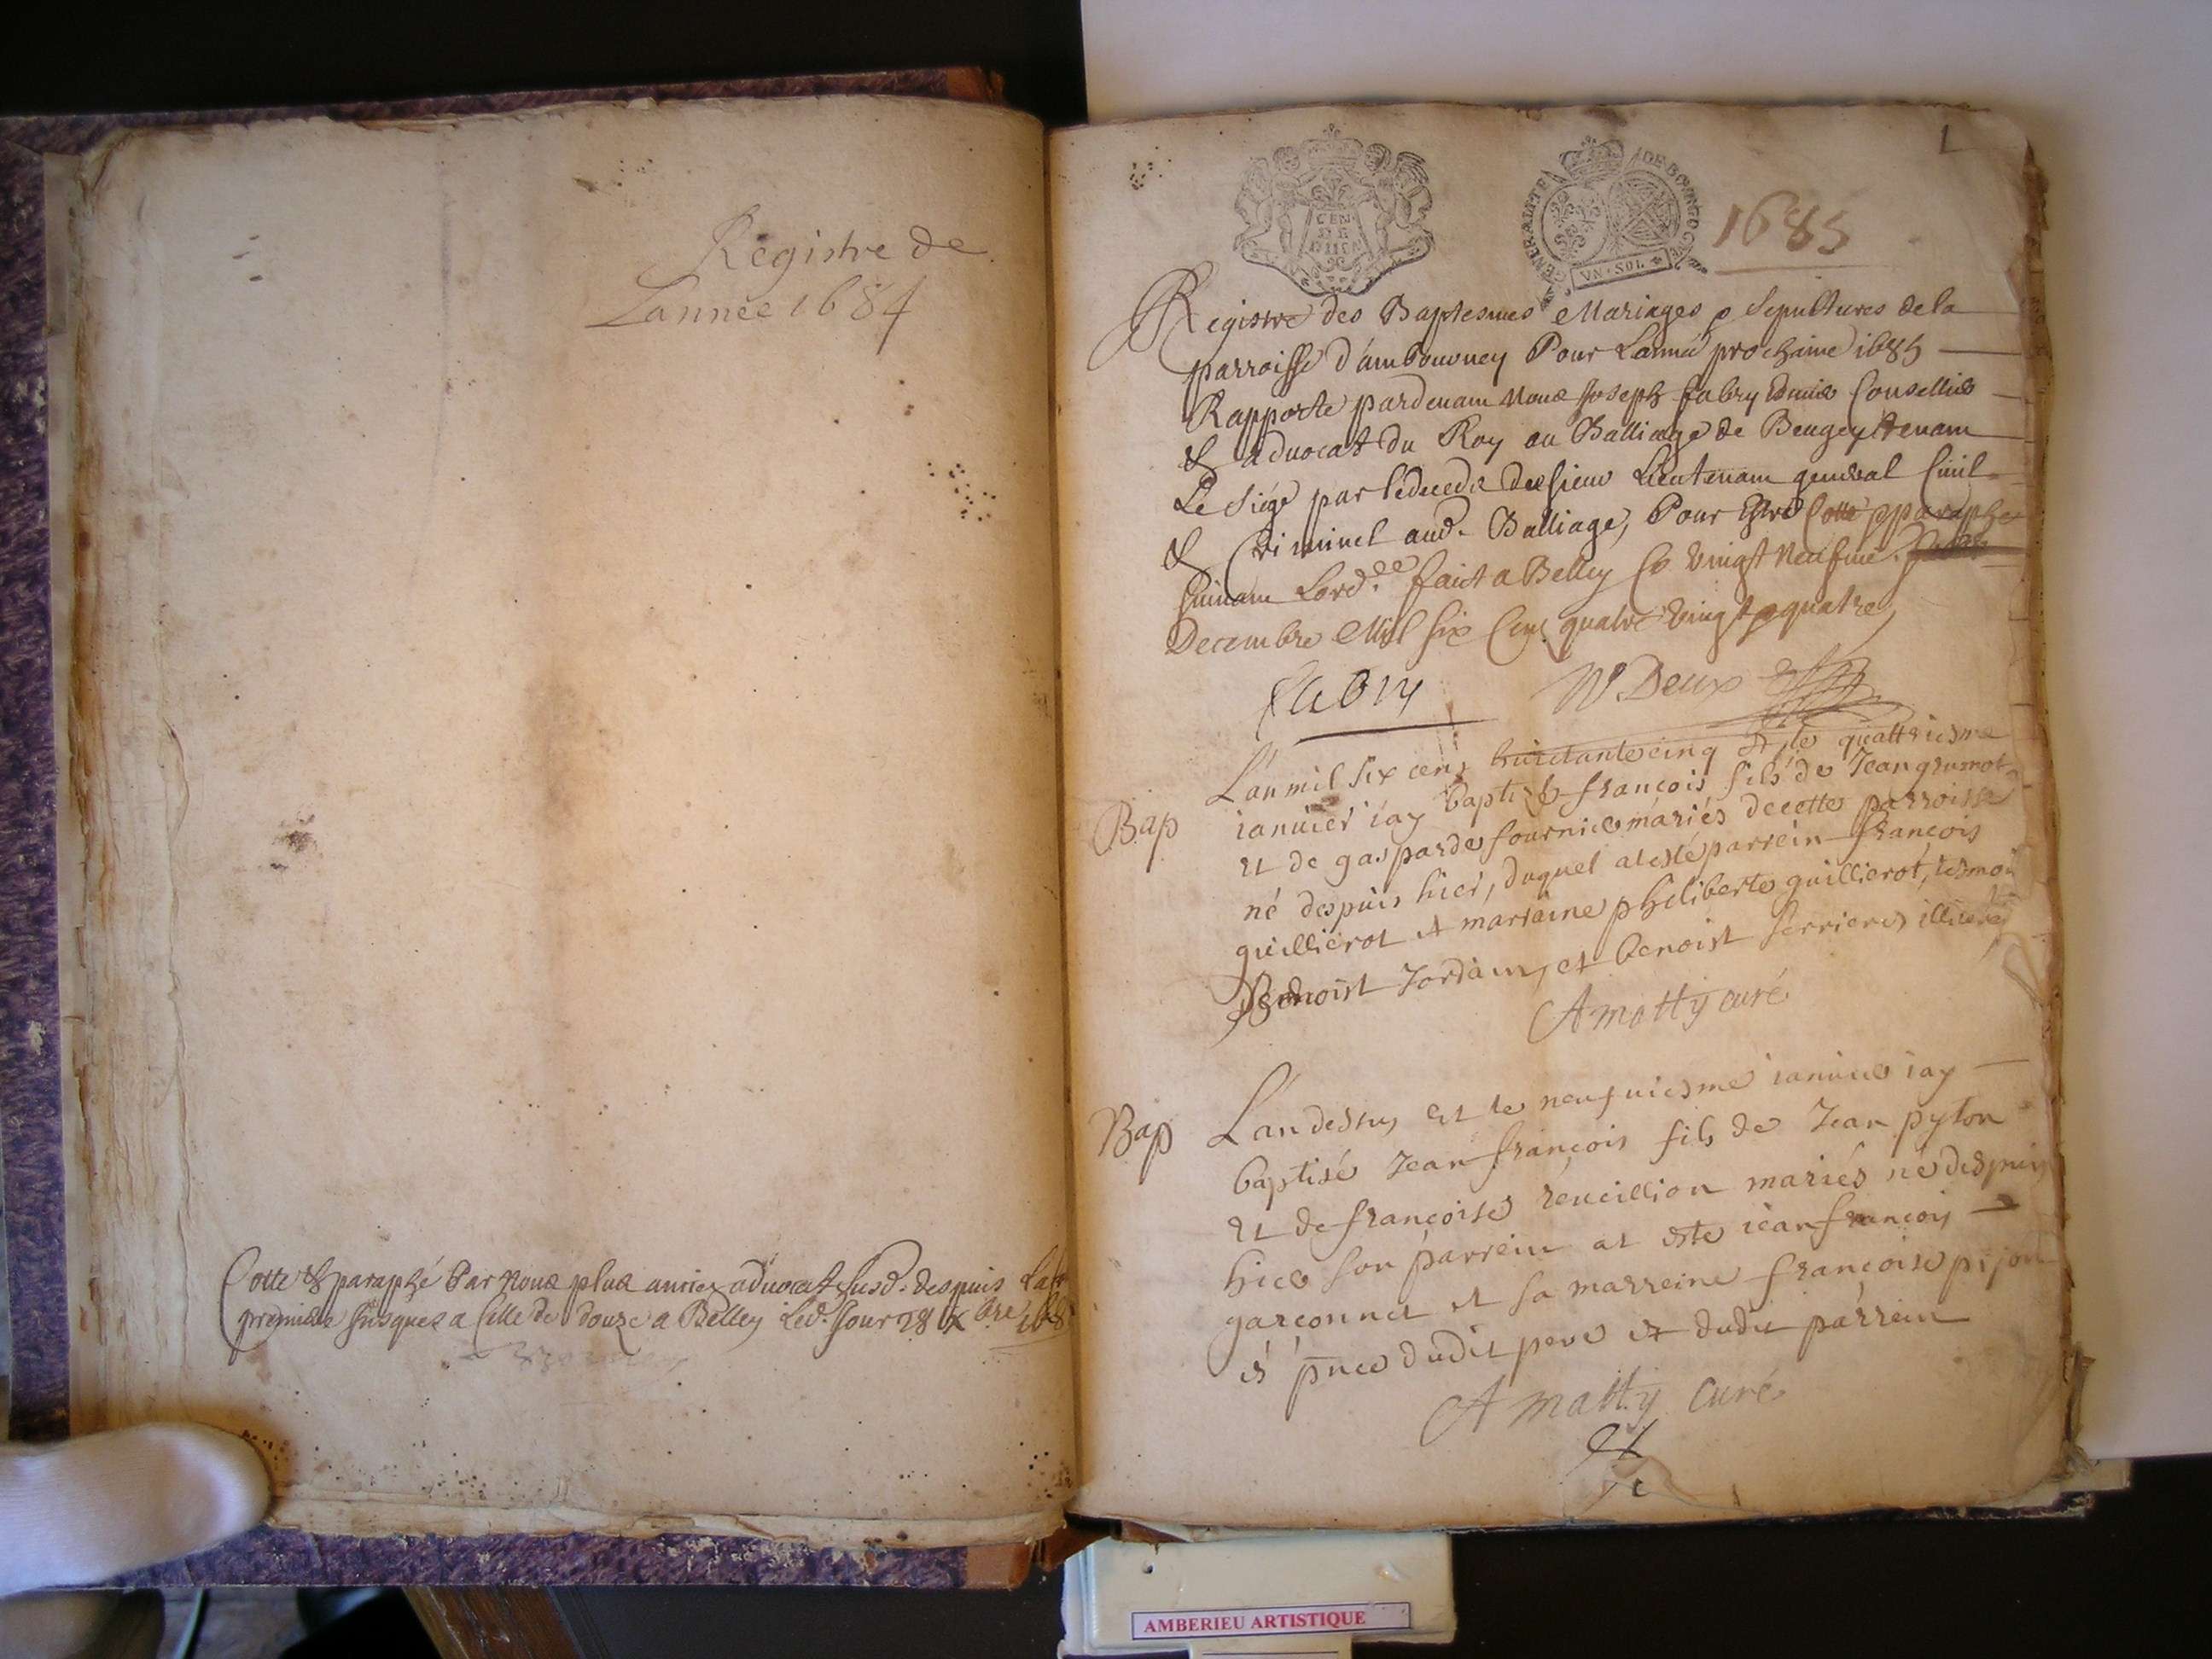 Registre de
Lannee 1684
Cotte & paraphé Par Nous plus ancien advocat susd. despuis La
premiere Jusques a Celle de douze a Belley Led. Jour 28 Xbre 168
1
CEN
DE
DIICE
GENERALITE DE BOVRGOGNE
VN·SOL
1685
Registre des Baptesmes Mariages & Sepultures de la
parroisse d'ambouuney Pour Lannée prochaine 1685
Rapporte pardeuam Nous Joseph fabry Conseillier
& aduocat du Roy au Balliage de Beugey tenam
Le Siége par le deceds du sieur Lieutenam general Ciuil
& Criminel aud. Balliage, Pour Estre Cotté & paraphe
suiuam Lord.ce faict a Belley Ce Vingt Neufme
Decembre Mil six Cens quatre Vingt & quatre
fabry
Deux
Bap
L'an mil six cens huictante cinq et le quattriesme
ianuier i'ay baptisé françois fils de Jean grumot
et de gasparde fournier mariés de cette parroisse
né despuis hier, duquel at esté parrein françois
guillierot et marraine philiberte guillierot, tesmoin
Benoist Jordain, et benoist ferrieres illiteres
A matty curé
Bap
L'an dessus et le neufuiesme ianuier i'ay
baptisé Jean françois fils de Jean pyton
et de françoise reueillion mariés né despuis
hier son parrein at esté iean françois
garconnet et sa marreine françoise pijon
és pnce dudit pere et dudit parrein
A matty Curé
AMBERIEU ARTISTIQUE